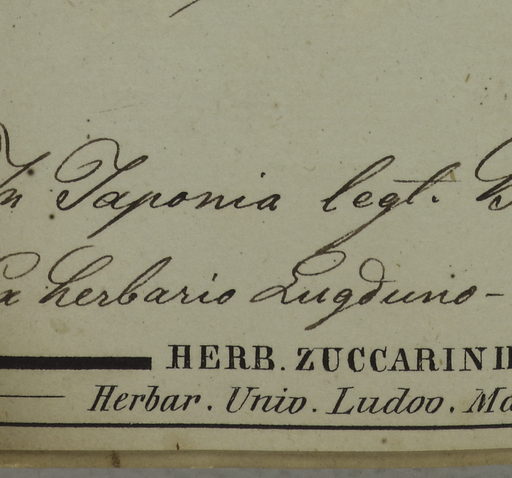 In Japonia legt. B
Ex herbario Lugduno-
HERB. ZUCCARINII
Herbar. Univ. Ludov. Ma